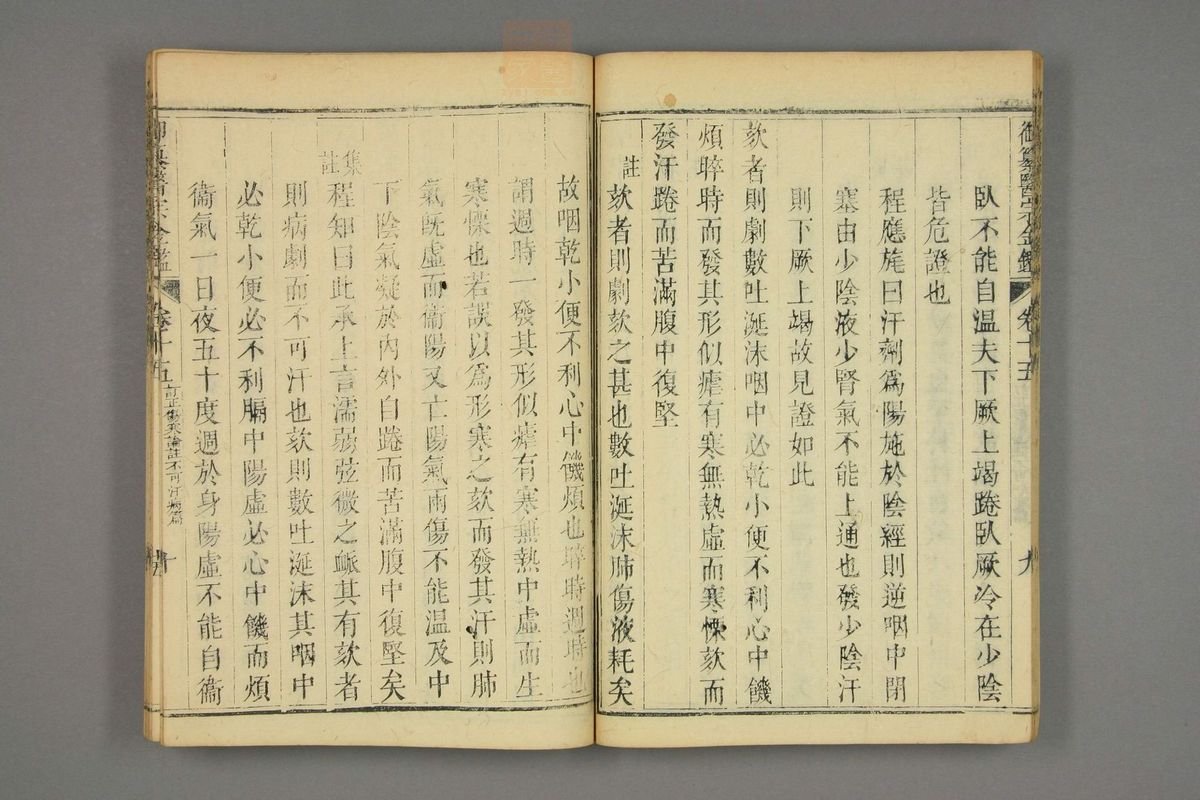 御纂醫宗金鑑 卷十五 九
臥不能自溫夫下厥上竭踡臥厥冷在少陰
皆危證也
程應旄曰汗劑爲陽施於陰經則逆咽中閉
塞由少陰液少腎氣不能上通也發少陰汗
則下厥上竭故見證如此
欬者則劇數吐涎沫咽中必乾小便不利心中饑
煩晬時而發其形似瘧有寒無熱虛而寒慄欬而
發汗踡而苦滿腹中復堅
註欬者則劇欬之甚也數吐涎沫肺傷液耗矣
故咽乾小便不利心中饑煩也晬時週時也
謂週時一發其形似瘧有寒無熱中虛而生
寒慄也若誤以爲形寒之欬而發其汗則肺
氣旣虛而衞陽又亡陽氣兩傷不能溫及中
下陰氣凝於內外自踡而苦滿腹中復堅矣
集註程知曰此承上言濡弱弦微之脈其有欬者
則病劇而不可汗也欬則數吐涎沫其咽中
必乾小便必不利膈中陽虛必心中饑而煩
衞氣一日夜五十度週於身陽虛不能自衞
御纂醫宗金鑑 卷十五 訂正傷寒論註不可汗病篇 十